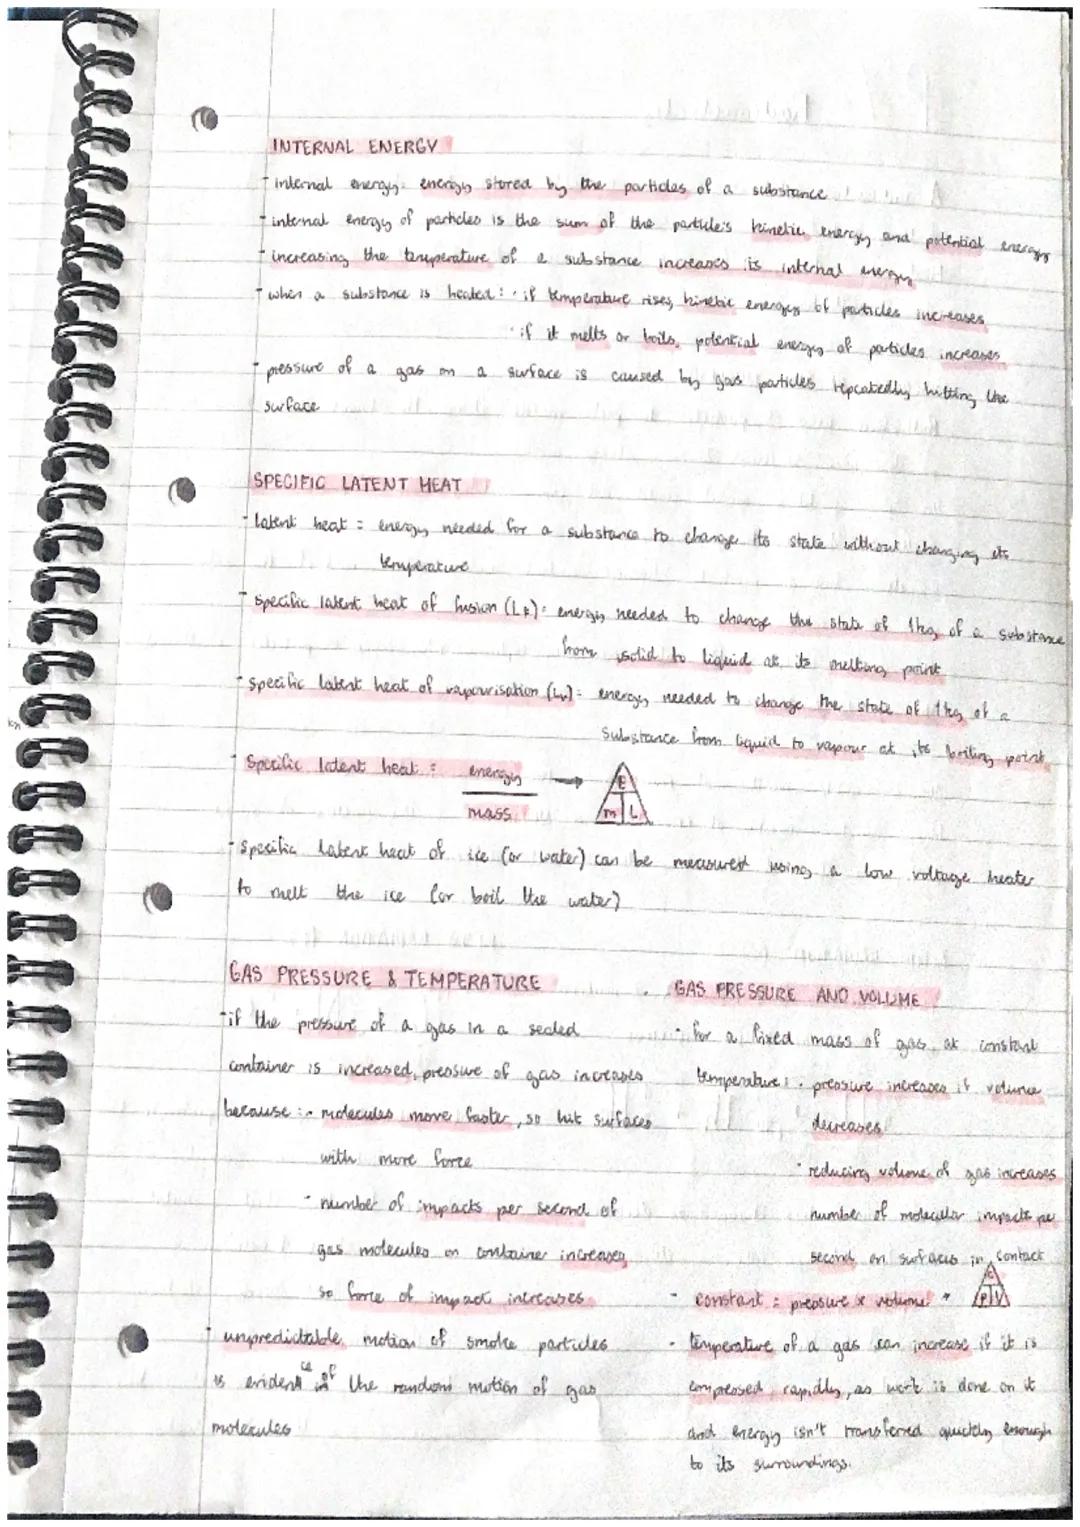 INTERNAL ENERGY
- internal energy: energy stored by the particles of a substance
- internal energy of particles is the sum of the particle's kinetic energy and potential energy
- increasing the temperature of a substance increases its internal energy
- when a substance is heated: · if temperature rises, kinetic energy of particles increases
· if it melts or boils, potential energy of particles increases
- pressure of a gas on a surface is caused by gas particles repeatedly hitting the
surface
SPECIFIC LATENT HEAT
- latent heat = energy needed for a substance to change its state without changing its
temperature
- specific latent heat of fusion (LF) = energy needed to change the state of 1kg of a substance
from solid to liquid at its melting point
- specific latent heat of vapourisation (Lv) = energy needed to change the state of 1kg of a
substance from liquid to vapour at its boiling point
- specific latent heat = energy → E
mass m L
- specific latent heat of ice (or water) can be measured using a low voltage heater
to melt the ice (or boil the water)
GAS PRESSURE & TEMPERATURE
- if the pressure of a gas in a sealed
container is increased, pressure of gas increases
because: · molecules move faster, so hit surfaces
with more force
· number of impacts per second of
gas molecules on container increases,
so force of impact increases
- unpredictable motion of smoke particles
is evidence of the random motion of gas
molecules
GAS PRESSURE AND VOLUME
- for a fixed mass of gas at constant
temperature: · pressure increases if volume
decreases
· reducing volume of gas increases
number of molecular impacts per
second on surfaces in contact
- constant = pressure x volume C P V
- temperature of a gas can increase if it is
compressed rapidly, as work is done on it
and energy isn't transferred quickly enough
to its surroundings.